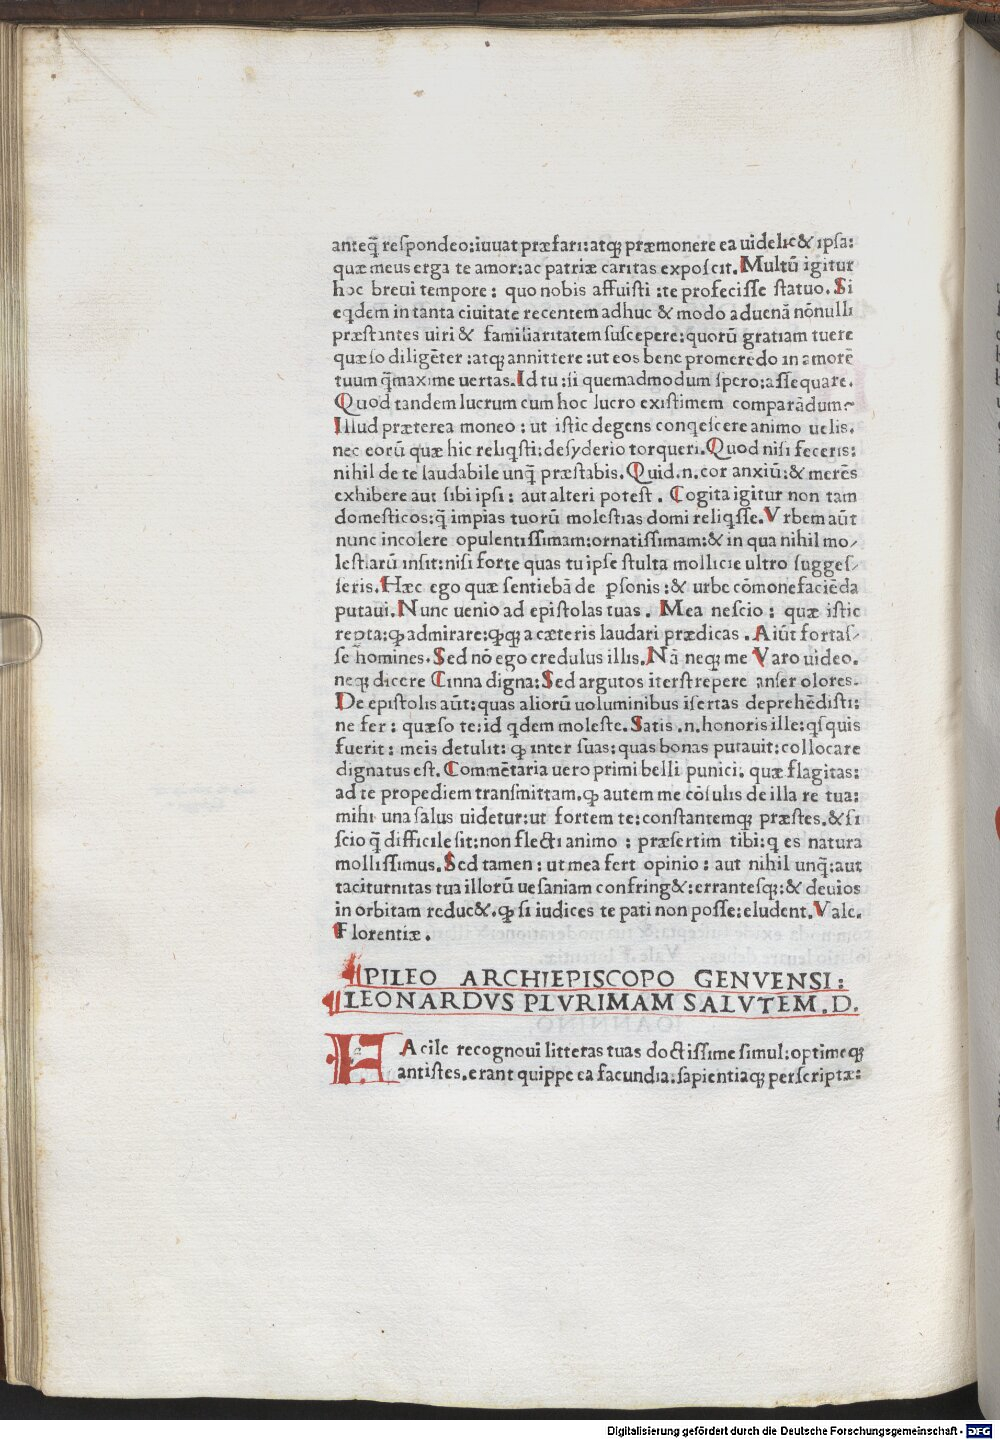 anteq̄ respondeo:iuuat præfari:atq; præmonere ea uidelic& ipsa:
quæ meus erga te amor:ac patriæ caritas exposcit. Multū igitur
hoc breui tempore: quo nobis affuisti :te profecisse statuo. Si
eqdem in tanta ciuitate recentem adhuc & modo aduenā nōnulli
præstantes uiri & familiaritatem suscepere:quorū gratiam tuere
quæso diligēter :atq; annittere :ut eos bene promerēdo in amorē
tuum q̄maxime uertas. Id tu :si quemadmodum spero:assequare.
Quod tandem lucrum cum hoc lucro existimem comparādum~
Illud præterea moneo : ut istic degens conqescere animo uelis.
nec eorū quæ hic reliqsti:desyderio torqueri. Quod nisi feceris:
nihil de te laudabile unq̄ præstabis. Quid .n. cor anxiū:& merēs
exhibere aut sibi ipsi : aut alteri potest . Cogita igitur non tam
domesticos:q̄ impias tuorū molestias domi reliqsse. Vrbem aūt
nunc incolere opulentissimam:ornatissimam:& in qua nihil mo/
lestiarū insit:nisi forte quas tu ipse stulta mollicie ultro sugges/
seris. Hæc ego quæ sentiebā de psonis :& urbe cōmonefaciēda
putaui. Nunc uenio ad epistolas tuas . Mea nescio : quæ istic
repta:ꝙ admirare:ꝙq; a cæteris laudari prædicas . Aiūt fortas/
se homines. Sed nō ego credulus illis. Nā neq; me Varo uideo.
neq; dicere Cinna digna: Sed argutos iterstrepere anser olores.
De epistolis aūt:quas aliorū uoluminibus isertas deprehēdisti:
ne fer : quæso te:id qdem moleste. Satis .n. honoris ille:qsquis
fuerit : meis detulit: ꝙ inter suas:quas bonas putauit:collocare
dignatus est. Commētaria uero primi belli punici: quæ flagitas:
ad te propediem transmittam.ꝙ autem me cōsulis de illa re tua:
mihi una salus uidetur:ut fortem te:constantemq; præstes.& si
scio q̄ difficile sit:non flecti animo : præsertim tibi:q es natura
mollissimus. Sed tamen : ut mea fert opinio : aut nihil unq̄:aut
taciturnitas tua illorū uesaniam confring&:errantesq;:& deuios
in orbitam reduc&.ꝙ si iudices te pati non posse:eludent. Vale.
Florentiæ .
PILEO ARCHIEPISCOPO GENVENSI:
LEONARDVS PLVRIMAM SALVTEM .D.
FAcile recognoui litteras tuas doctissime simul:optimeq;
antistes.erant quippe ea facundia:sapientiaq; perscriptæ:
Digitalisierung gefördert durch die Deutsche Forschungsgemeinschaft - DFG